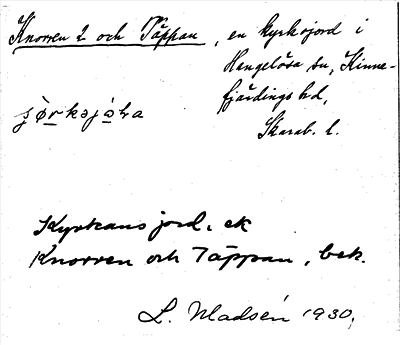 Knorren 2 och Täppan, en kyrkojord i
Hangelösa sn, Kinne-
fjärdings hd,
Skarab. l.
Kyrkans jord, ek
Knorren och Täppan, bek.
L. Madsén 1930.